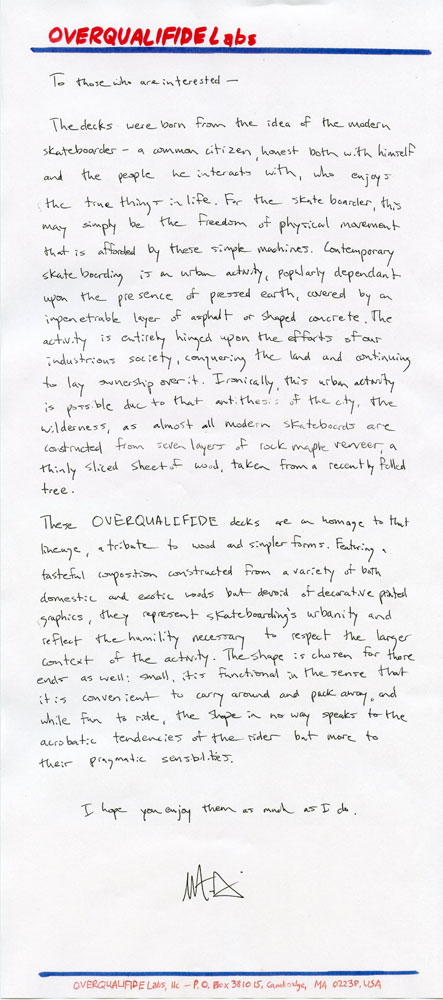 OVERQUALIFIDE Labs
To those who are interested —
The decks were born from the idea of the modern
skateboarder – a common citizen, honest both with himself
and the people he interacts with, who enjoys
the true things in life. For the skate boarder, this
may simply be the freedom of physical movement
that is afforded by these simple machines. Contemporary
skate boarding is an urban activity, popularly dependant
upon the presence of pressed earth, covered by an
impenetrable layer of asphalt or shaped concrete. The
activity is entirely hinged upon the efforts of our
industrious society, conquering the land and continuing
to lay ownership over it. Ironically, this urban activity
is possible due to that antithesis of the city, the
wilderness, as almost all modern skateboards are
constructed from seven layers of rock maple veneer, a
thinly sliced sheet of wood, taken from a recently felled
tree.
These OVERQUALIFIDE decks are an homage to that
lineage, a tribute to wood and simpler forms. Featuring a
tasteful composition constructed from a variety of both
domestic and exotic woods but devoid of decorative printed
graphics, they represent skateboarding's urbanity and
reflect the humility necessary to respect the larger
context of the activity. The shape is chosen for those
ends as well: small, it is functional in the sense that
it is convenient to carry around and pack away, and
while fun to ride, the shape in no way speaks to the
acrobatic tendencies of the rider but more to
their pragmatic sensibilities.
I hope you enjoy them as much as I do.
OVERQUALIFIDE Labs, llc – P.O. Box 381015, Cambridge, MA 02238, USA